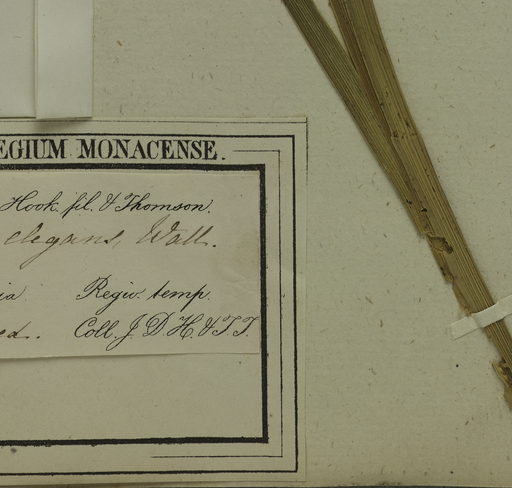 EGIUM MONACENSE.
Hook. fil. & Thomson.
elegans, Wall.
ia. Regio. temp.
ed. Coll. J. D. H. & T. T.